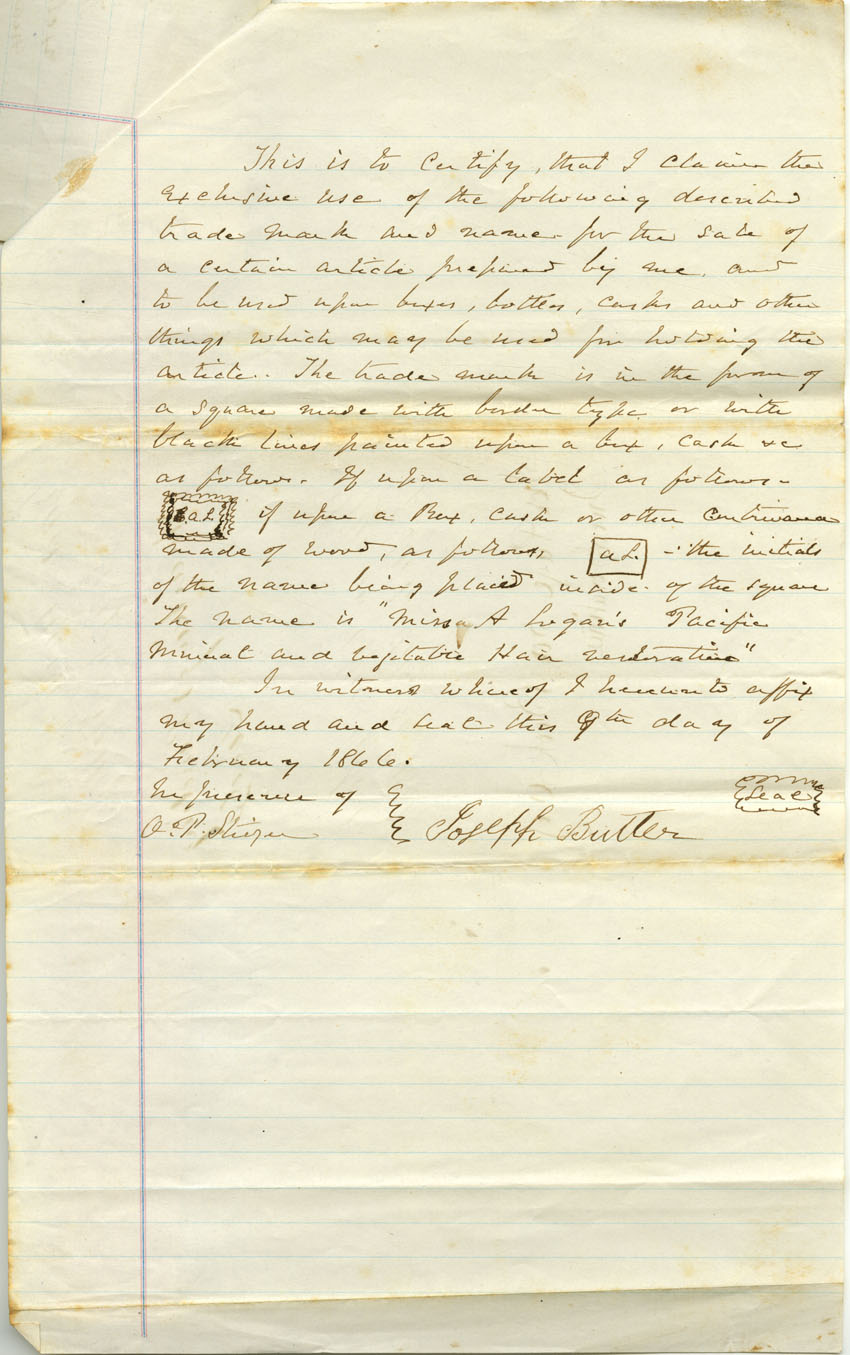 This is to certify, that I claim the
exclusive use of the following described
trade mark and name for the sale of
a certain article prepared by me, and
to be used upon boxes, bottles, casks and other
things which may be used for holding the
article. The trade mark is in the form of
a square made with border type or with
black lines painted upon a box, cask &c
as follows. If upon a label as follows-
A.L. if upon a Box, cask or other contrivance
made of wood, as follows, A.L. - the initials
of the name being placed inside of the square
The name is "Miss A Logan's Pacific
Mineral and vegitable Hair restorative"
In witness whereof I hereunto affix
my hand and seal this 9th day of
February 1866.
In presence of
O.P. Joseph Butler Seal